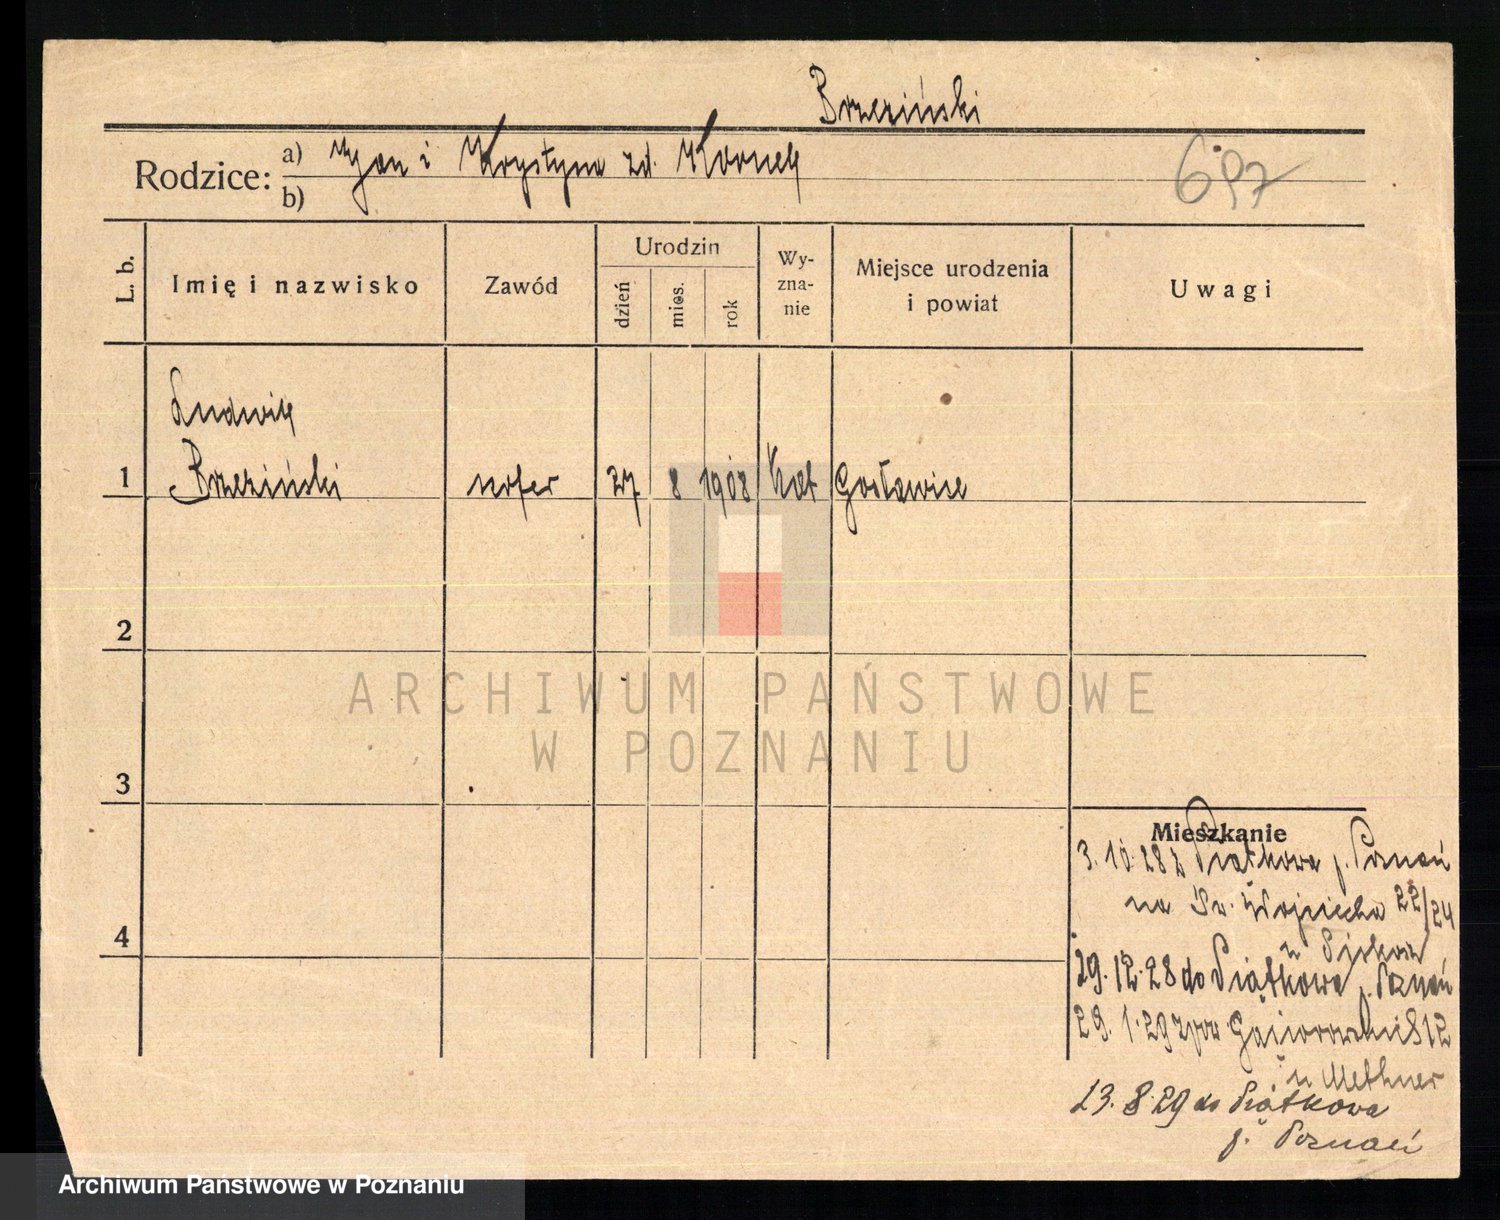 Brzeziński
Rodzice: a) Jan i Krystyna zd. Kornek
b)
697
L. b. Imię i nazwisko Zawód Urodzin dzień mies. rok Wy-zna-nie Miejsce urodzenia i powiat Uwagi
Ludwik
1 Brzeziński szofer 27 8 1908 kat Gosławice
2
3
4
ARCHIWUM PAŃSTWOWE
W POZNANIU
Mieszkanie
3. 10. 28 z Piątkowa p. Poznań
na Św. Wojciecha 22/24
u
29. 12. 28 do Piątkowa p. Poznań
29. 1. 29 12
u Methner
23. 8. 29 do Piątkowa
p. Poznań
Archiwum Państwowe w Poznaniu